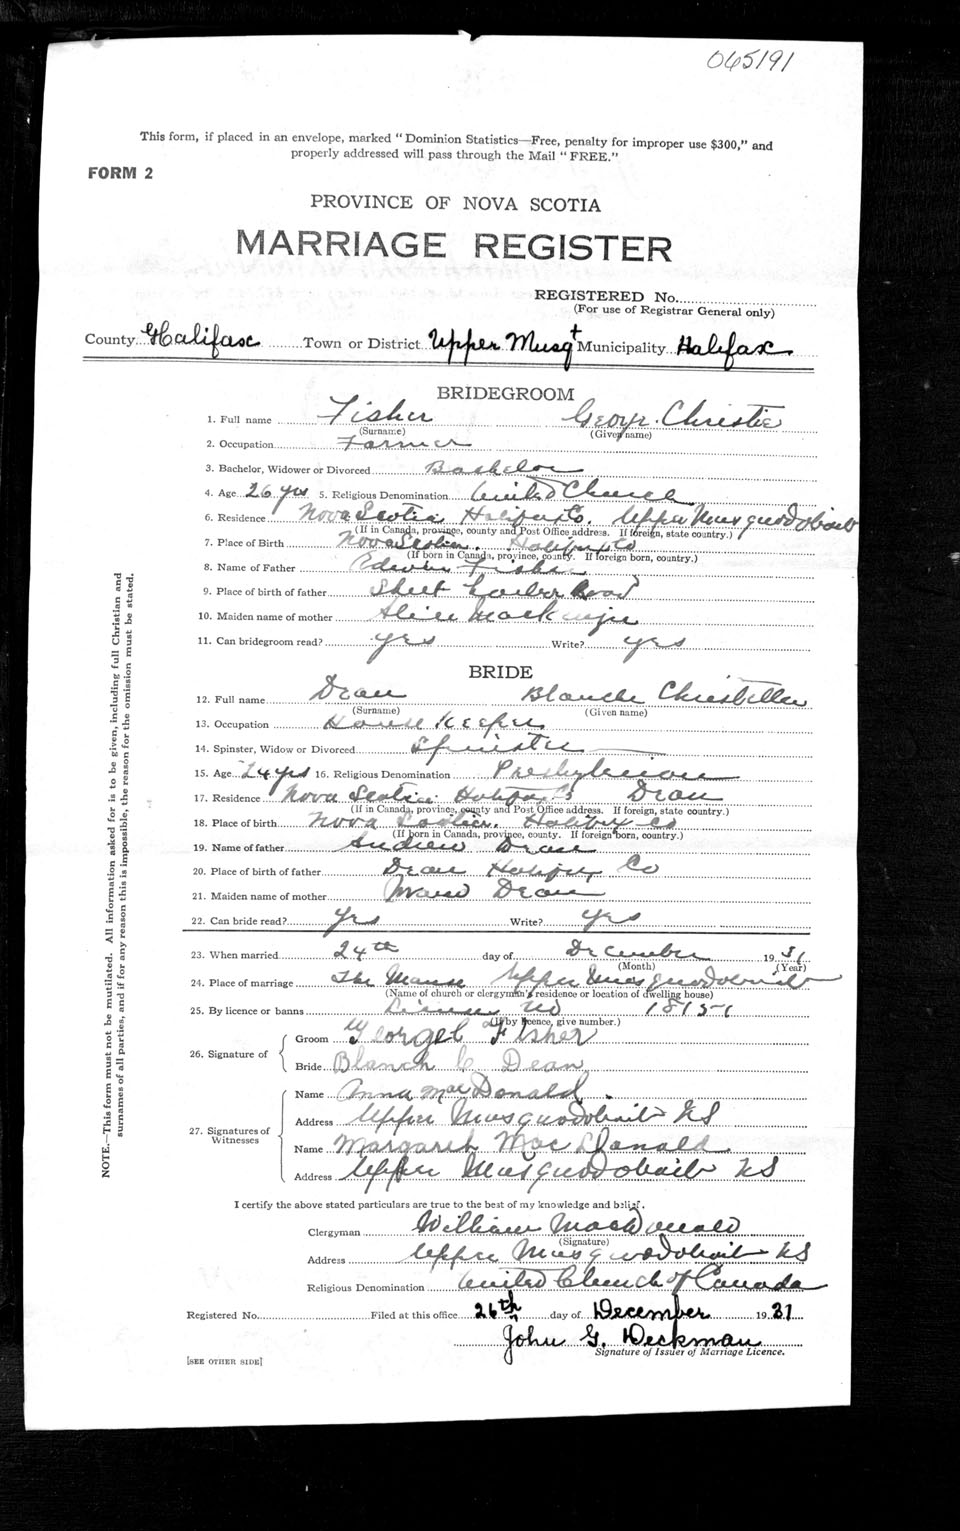 065191
This form, if placed in an envelope, marked "Dominion Statistics—Free, penalty for improper use $300," and
properly addressed will pass through the Mail "FREE."
FORM 2
PROVINCE OF NOVA SCOTIA
MARRIAGE REGISTER
REGISTERED No.
(For use of Registrar General only)
County Halifax Town or District Upper Musqt Municipality Halifax
BRIDEGROOM
1. Full name Fisher George Christie
(Surname) (Given name)
2. Occupation Farmer
3. Bachelor, Widower or Divorced Bachelor
4. Age 26 yrs 5. Religious Denomination United Church
6. Residence Nova Scotia Halifax Co. Upper Musquodoboit
(If in Canada, province, county and Post Office address. If foreign, state country.)
7. Place of Birth Nova Scotia. Halifax Co
(If born in Canada, province, county. If foreign born, country.)
8. Name of Father Edwin Fisher
9. Place of birth of father Sheet Harbor Road
10. Maiden name of mother Alice MacKenzie
11. Can bridegroom read? yes Write? yes
BRIDE
12. Full name Dean Blanche Christella
(Surname) (Given name)
13. Occupation House Keeper
14. Spinster, Widow or Divorced Spinster
15. Age 24 yrs 16. Religious Denomination Presbyterian
17. Residence Nova Scotia Halifax Co Dean
(If in Canada, province, county and Post Office address. If foreign, state country.)
18. Place of birth Nova Scotia. Halifax Co
(If born in Canada, province, county. If foreign born, country.)
19. Name of father Andrew Dean
20. Place of birth of father Dean Halifax Co
21. Maiden name of mother Dean
22. Can bride read? Yes Write? yes
23. When married 24th day of December 1931
(Month) (Year)
24. Place of marriage The Manse Upper Musquodoboit
(Name of church or clergyman's residence or location of dwelling house)
25. By licence or banns License No 18151
(If by licence, give number.)
26. Signature of Groom George C Fisher
Bride Blanch C Dean
27. Signatures of Witnesses Name Anna MacDonald.
Address Upper Musquodoboit NS
Name Margaret MacDonald
Address Upper Musquodoboit NS
I certify the above stated particulars are true to the best of my knowledge and belief.
Clergyman William MacDonald
(Signature)
Address Upper Musquodoboit NS
Religious Denomination United Church of Canada
Registered No. Filed at this office 26th day of December 1931
John G. Deckman
Signature of Issuer of Marriage Licence.
[SEE OTHER SIDE]
NOTE.—This form must not be mutilated. All information asked for is to be given, including full Christian and
surnames of all parties, and if for any reason this is impossible, the reason for the omission must be stated.